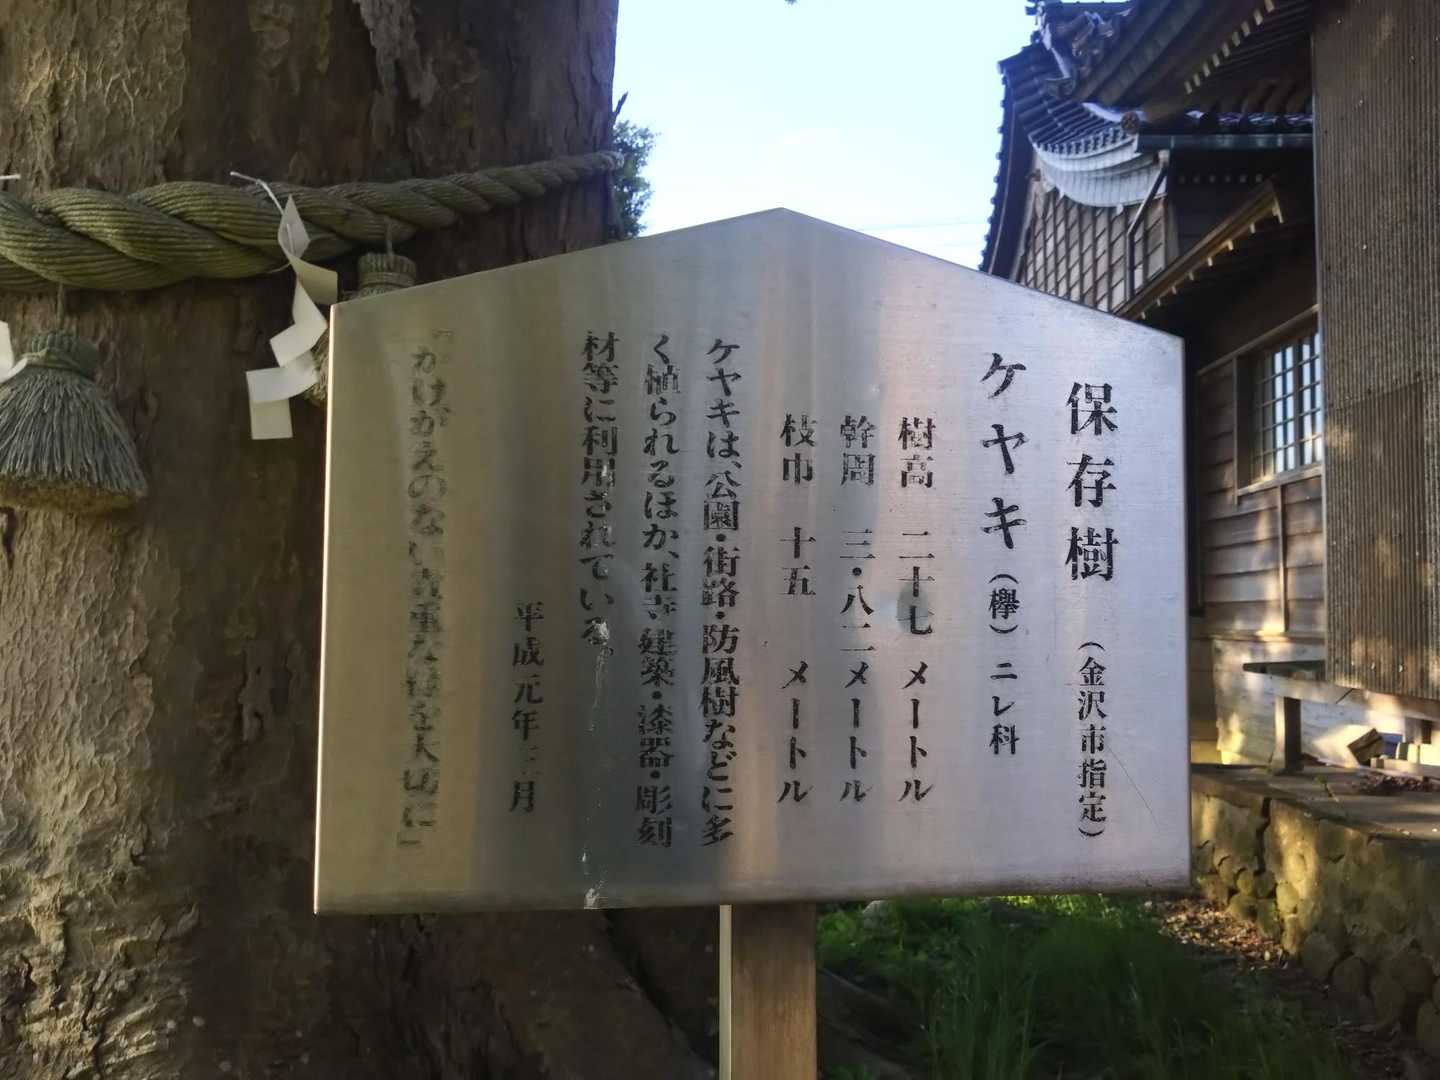 保存樹 (金沢市指定)
ケヤキ (欅) ニレ科
樹高 二十七 メートル
幹周 三・八二 メートル
枝巾 十五 メートル
ケヤキは、公園・街路・防風樹などに多
く植られるほか、社寺建築・漆器・彫刻
材等に利用されている。
平成元年三月
『かけがえのない貴重な緑を大切に』